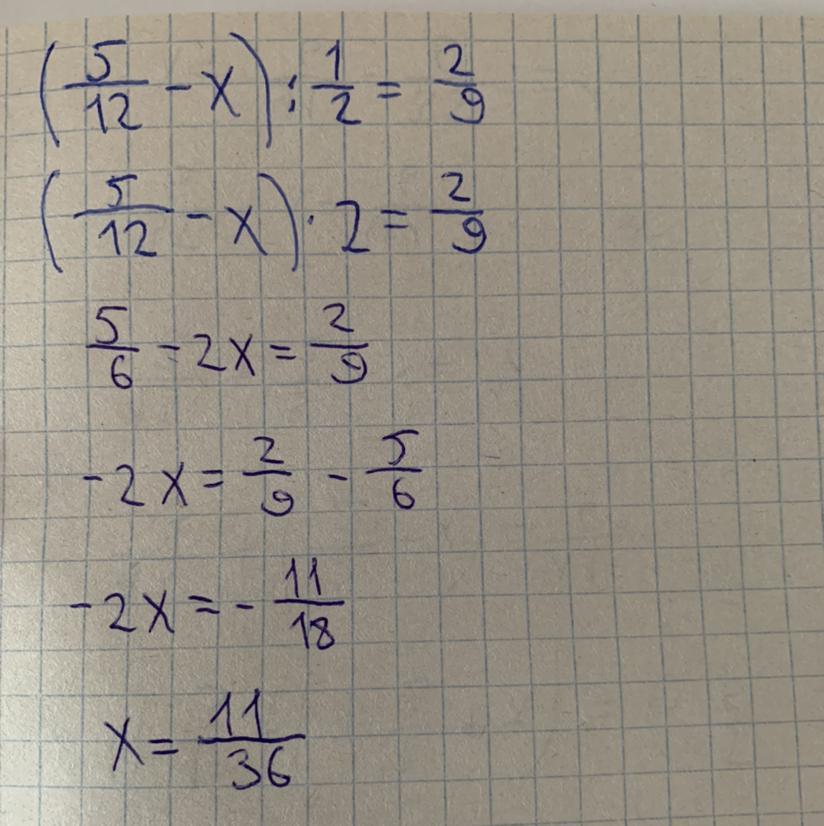 (5/12 - x) : 1/2 = 2/9
(5/12 - x) · 2 = 2/9
5/6 - 2x = 2/9
-2x = 2/9 - 5/6
-2x = - 11/18
x = 11/36